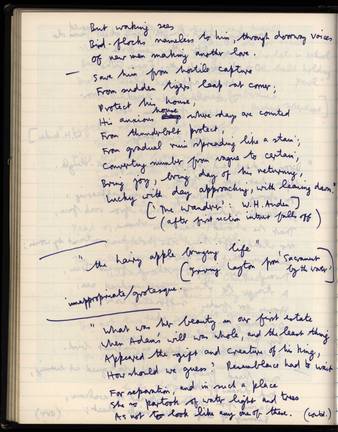 But waking sees
Bird-flocks nameless to him, through doorway voices
Of new men making another love.
Save him from hostile capture
From sudden tiger's leap at corner;
Protect his house,
His anxious house where days are counted
From thunderbolt protect,
From gradual ruin spreading like a stain;
Converting number from vague to certain,
Bring joy, bring day of his returning,
Lucky with day approaching, with leaning dawn."
['The Wanderer': W.H. Auden]
(after first section interest falls off)
"the hairy apple bringing life"
[Irving Layton from Sacrament by the water]
inappropriate/grotesque.
"What was her beauty in our first estate
When Adam's will was whole, and the least thing
Appeared the gift and creature of his king,
How should we guess? Resemblance had to wait
For separation, and in such a place
She so partook of water light and trees
As not to look like any one of these. (contd.)